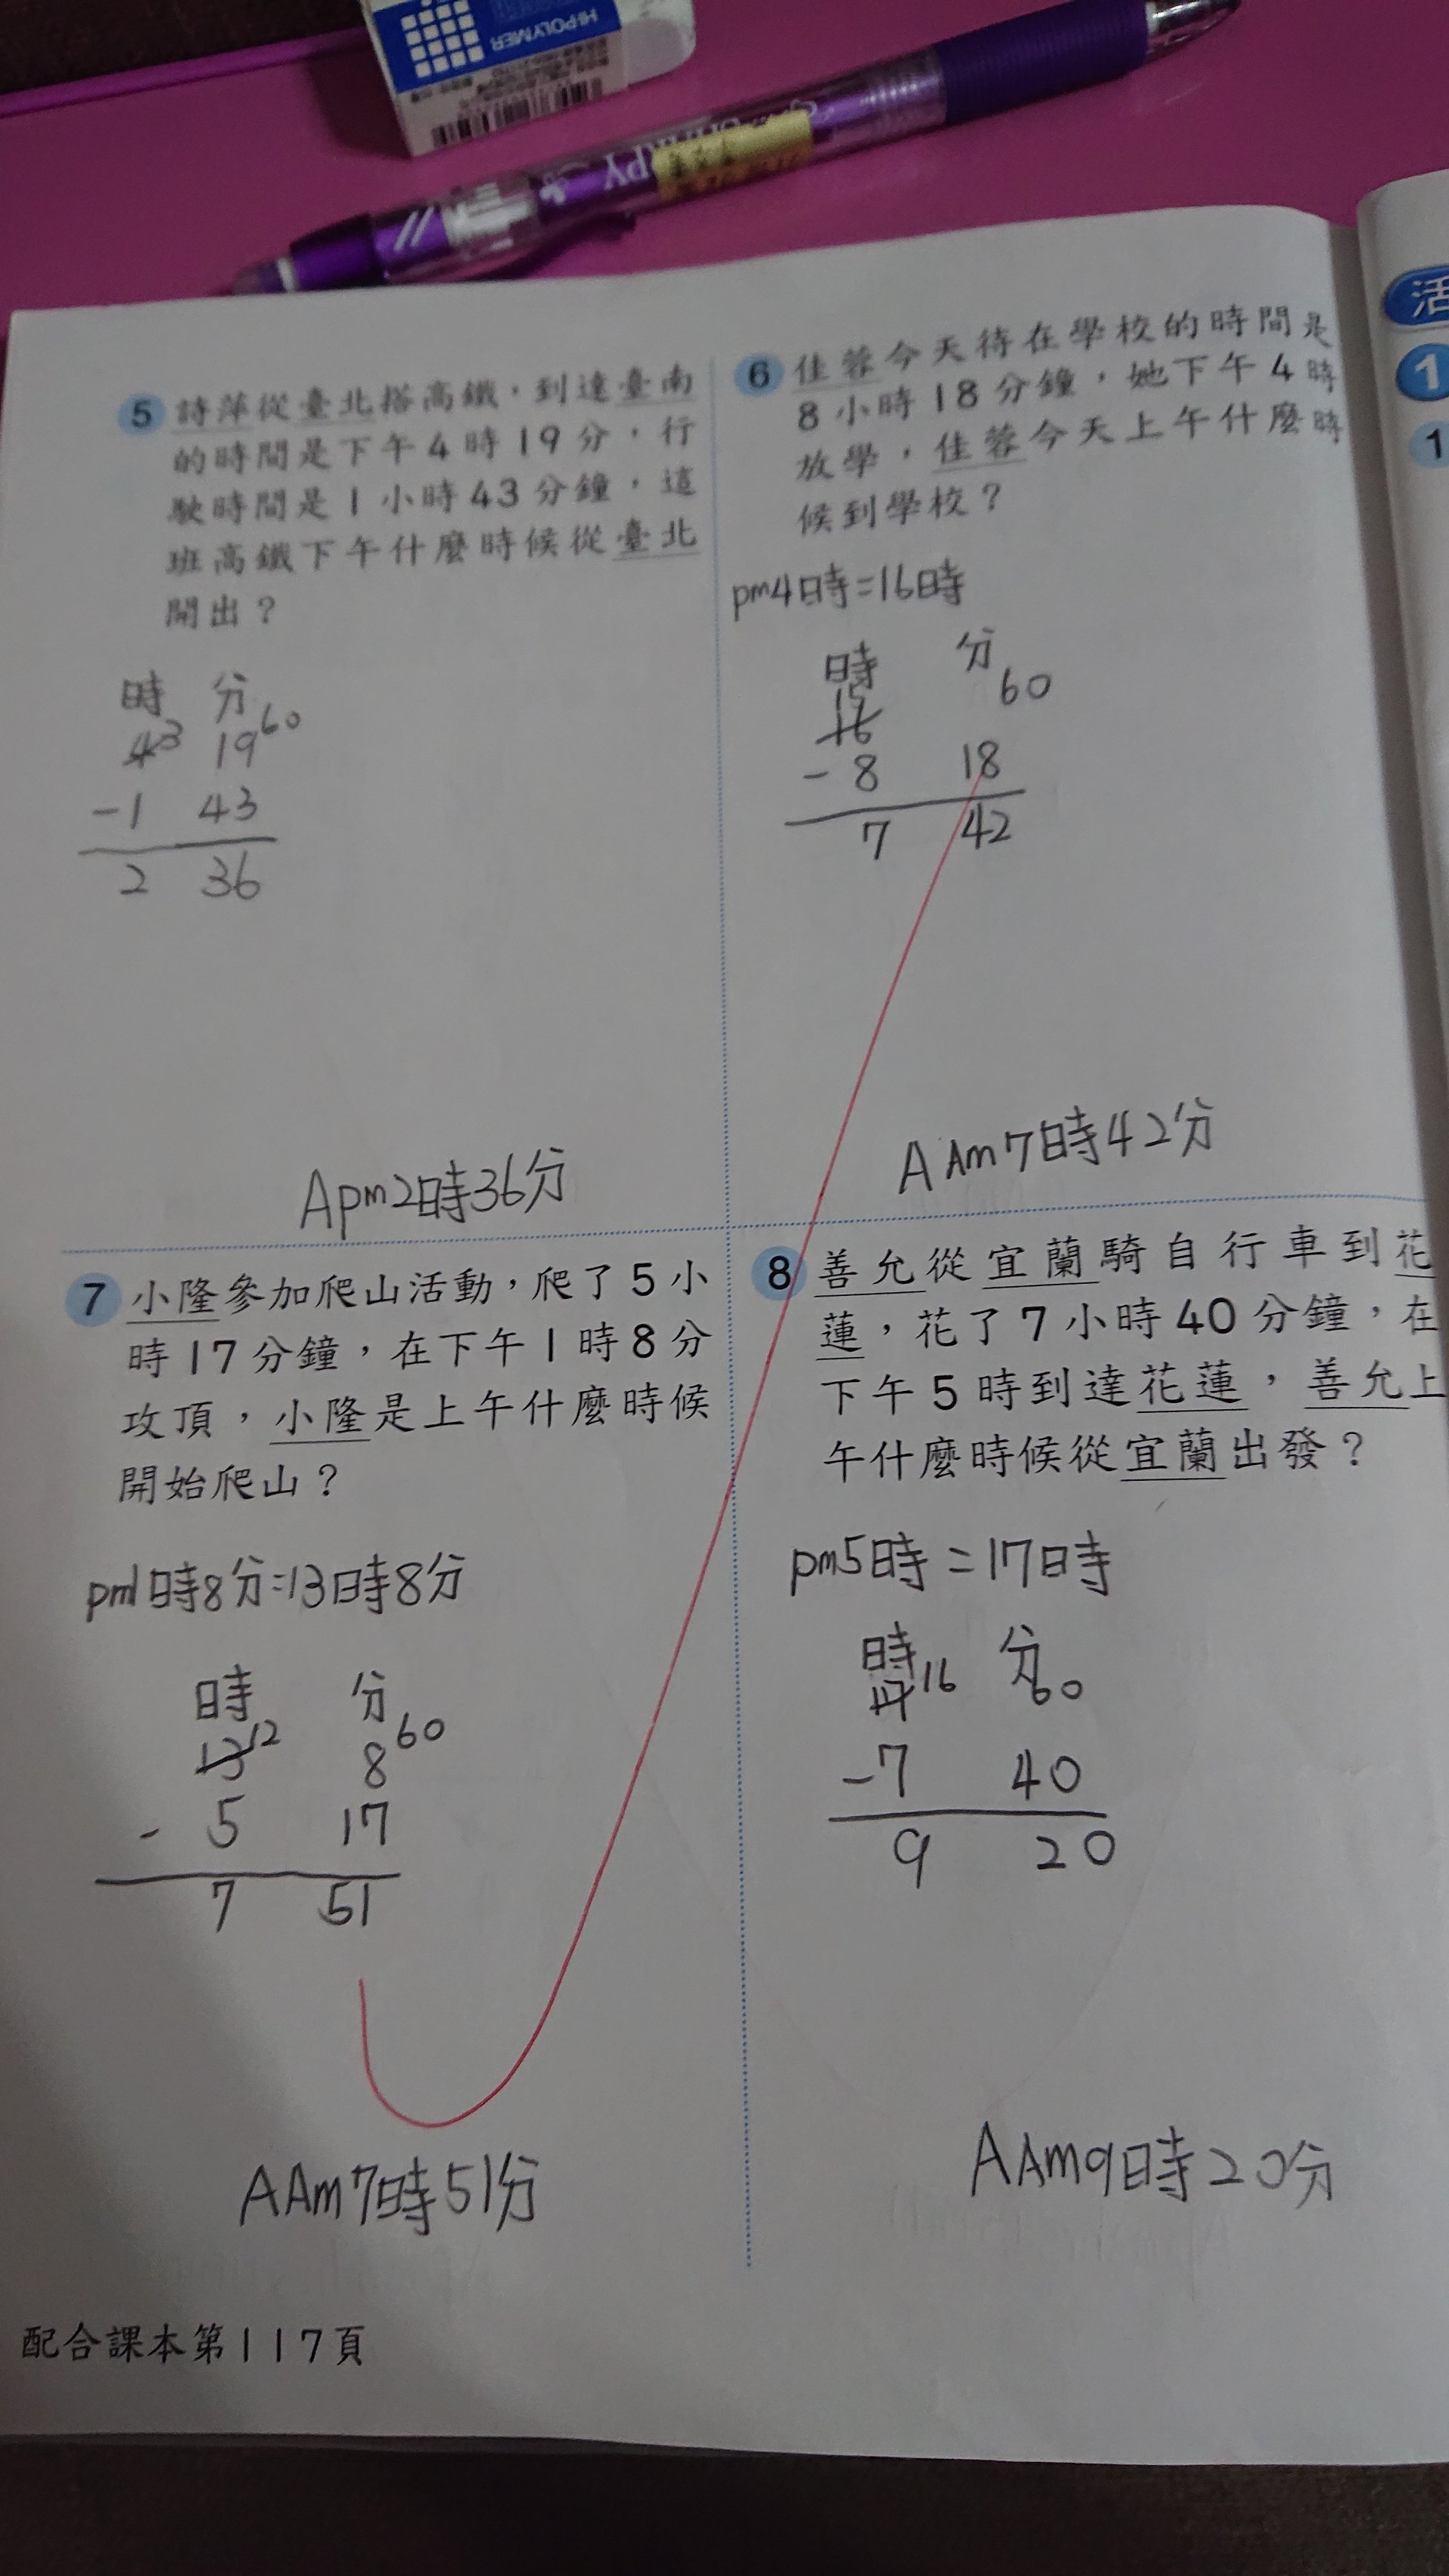 HI-POLYMER
5 詩萍從臺北搭高鐵，到達臺南
的時間是下午4時19分，行
駛時間是1小時43分鐘，這
班高鐵下午什麼時候從臺北
開出？
時 分
4 3 19 60
-1 43
2 36
Apm2時36分
6 佳蓉今天待在學校的時間是
8小時18分鐘，她下午4時
放學，佳蓉今天上午什麼時
候到學校？
pm4時=16時
時 分
15 60
16
-8 18
7 42
AAm7時42分
7 小隆參加爬山活動，爬了5小
時17分鐘，在下午1時8分
攻頂，小隆是上午什麼時候
開始爬山？
pm1時8分=13時8分
時 分
13 12 8 60
- 5 17
7 51
AAm7時51分
8 善允從宜蘭騎自行車到花
蓮，花了7小時40分鐘，在
下午5時到達花蓮，善允上
午什麼時候從宜蘭出發？
pm5時=17時
時 分
17 16 60
-7 40
9 20
AAm9時20分
配合課本第117頁
活
1
1